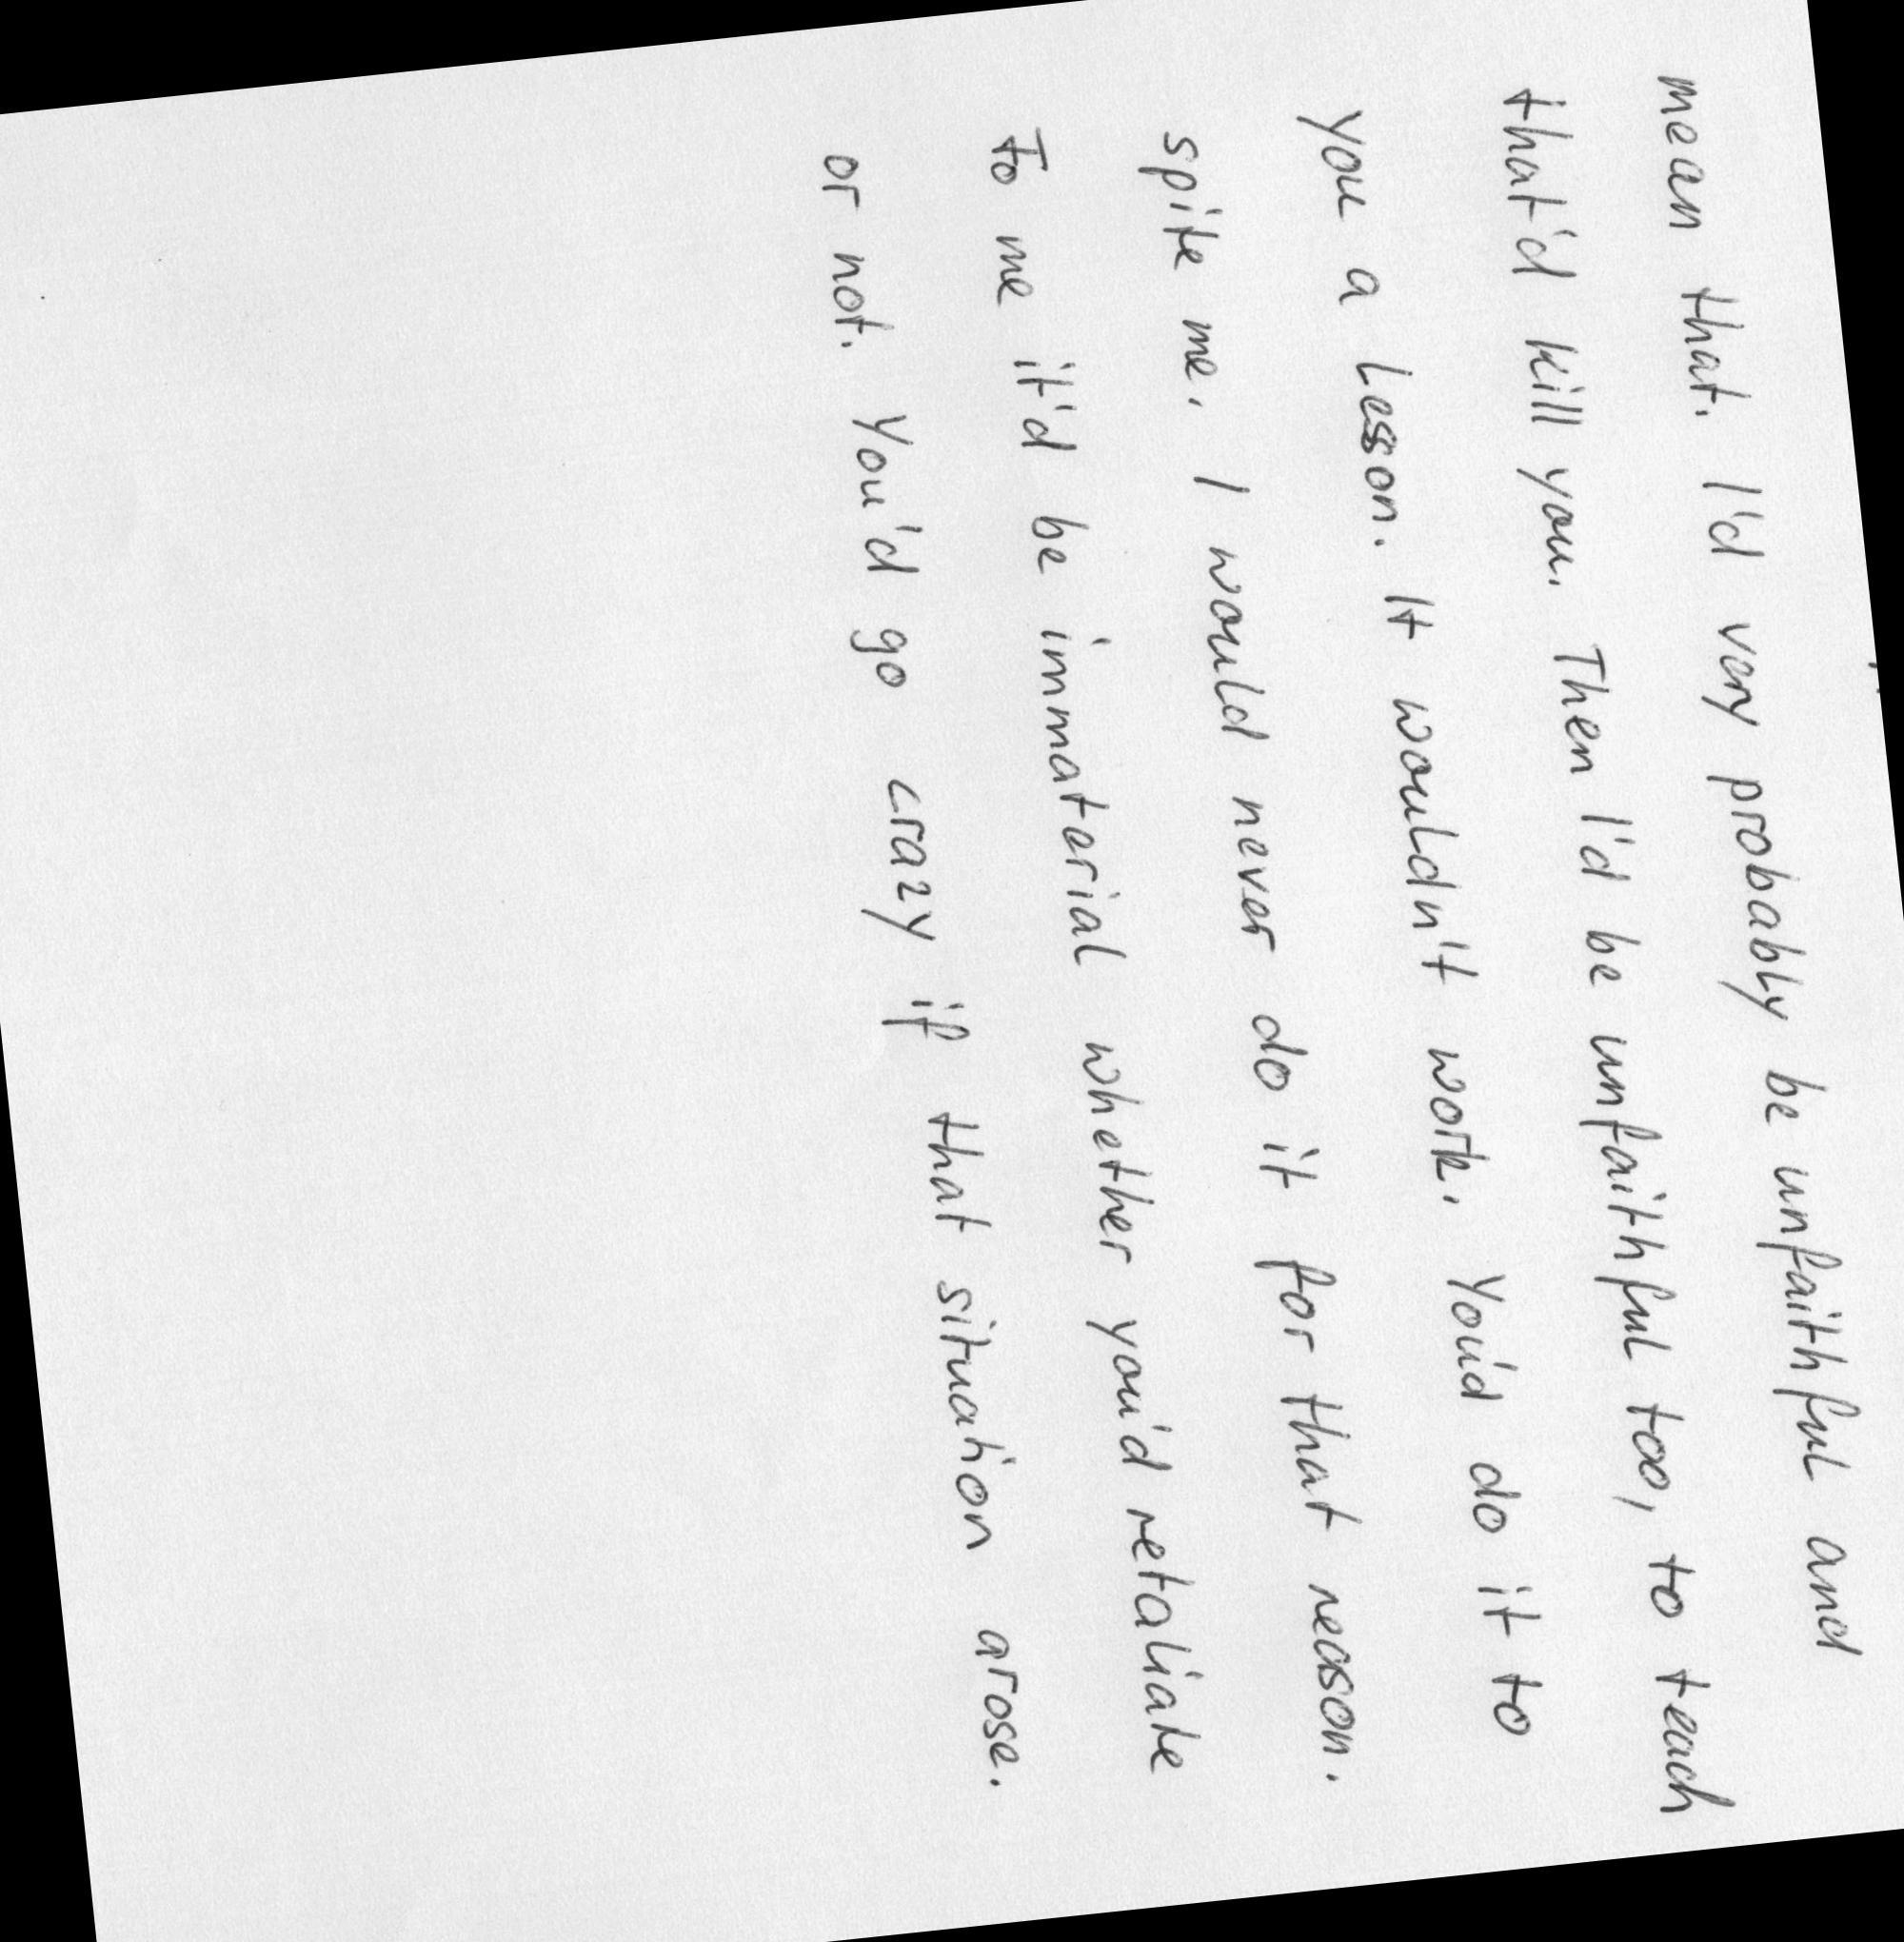 mean that. I'd very probably be unfaithful and
that'd kill you. Then I'd be unfaithful too, to teach
you a Lesson. It wouldn't work. You'd do it to
spite me. I would never do it for that reason.
To me it'd be immaterial whether you'd retaliate
or not. You'd go crazy if that situation arose.